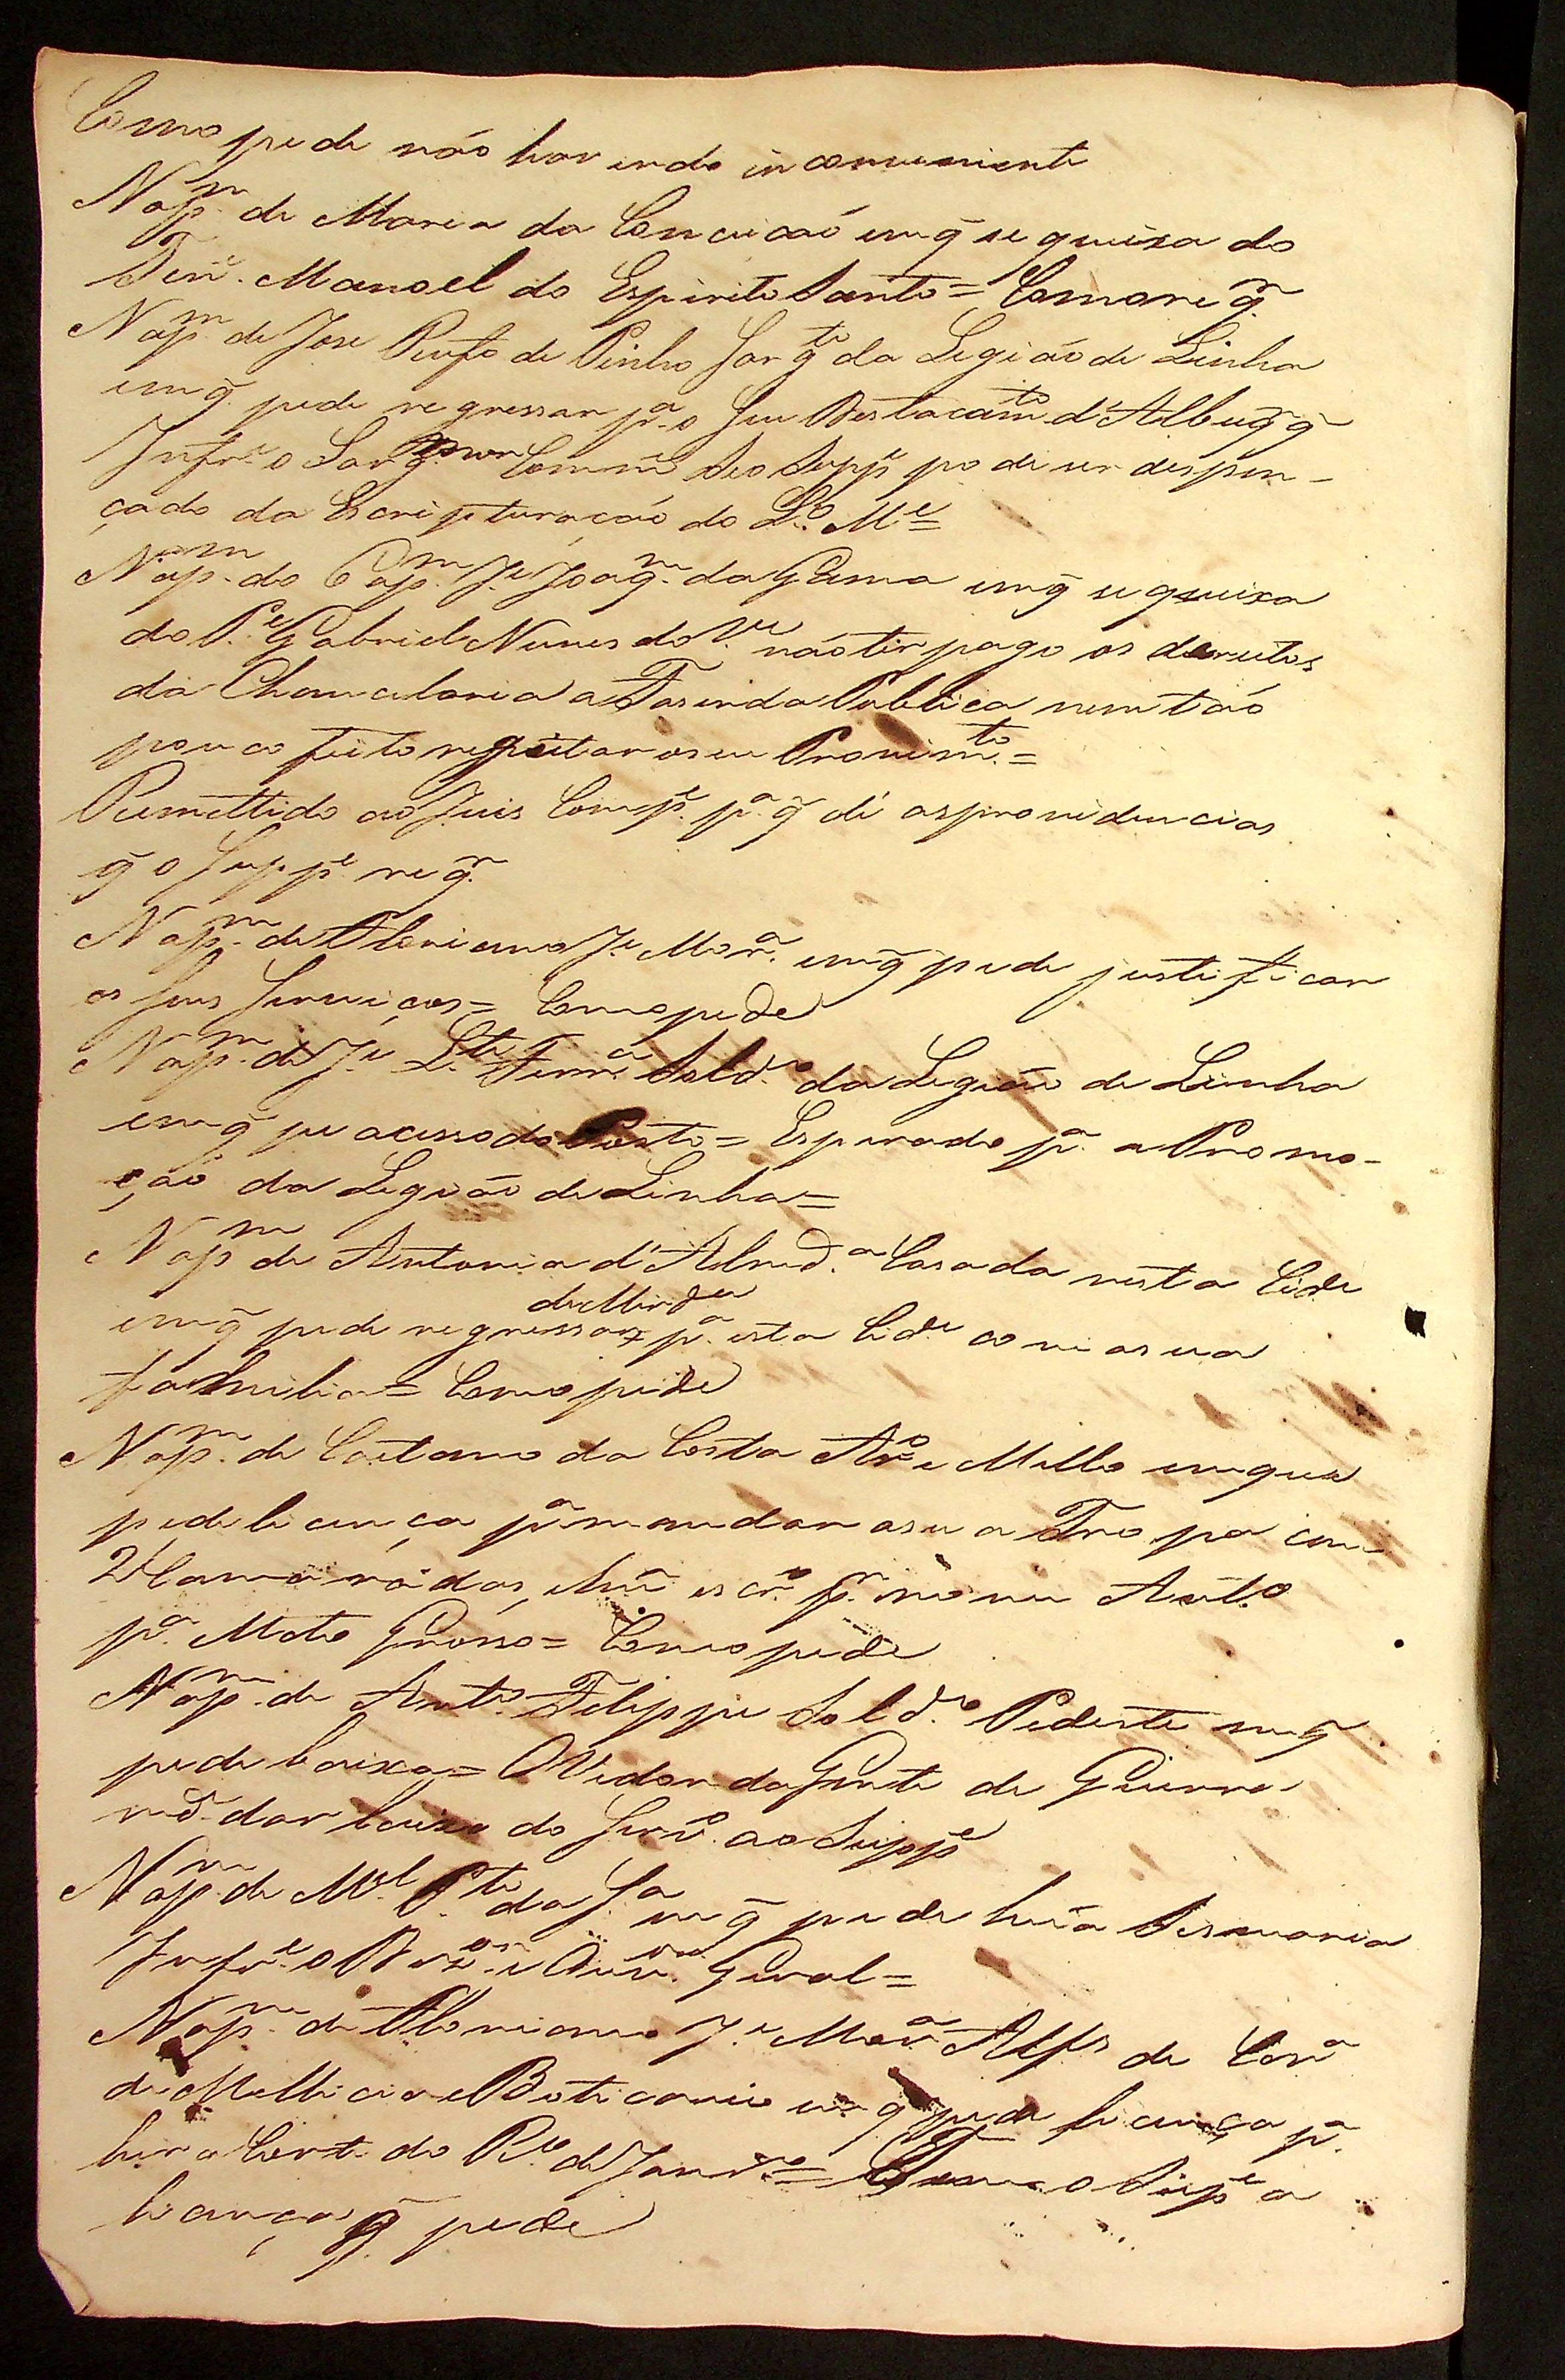 Como pede não havendo inconueniente
N ap.m de Maria da Conceicaõ em q̃ se queixa do
Ten.e Manoel do Espirito Santo = Como req.r
N ap.m de Jose Rufo de Pinho Sarg.to da Legião de Linha
em q̃ pede regressar p.a o seu Destacam.to d'Albuq.q
Infr.e o Sarg.mor Comm.e se o Supp.e pode ser despen-
çado da Escripturação do L.o M.e =
N ap.m do Cap.m J.e Joaq.m da Gama em q̃ se queixa
do P.e Gabriel Nunes do V.e não ter pago os direitos
da Chancelaria a Fasenda Publica nem tão
pouco feito regeitar o seu Provim.to =
Remettido ao Juis Comp.e p.a q̃ dê as providencias
q̃ o Supp.e req.r
N ap.m de Floriano J.e Mor.a em q̃ pede justificar
os seus serviços = Como pede
N ap.m de J.e L.te Ferr.a Sold.o da Legião de Linha
em q̃ pe acesso do Posto = Esperado p.a a Promo-
ção da Legião de Linha =
N ap.m de Antonia d'Almd.a Casada nesta Cid.e
de Mird.a
em q̃ pede regressar p.a esta Cid.e com a sua
familia = Como pede
N ap.m de Caetano da Costa Ar.o e Mello em que
pede licença p.a mandar a sua Tropa com
2 Camarádas, e hũ escr.o p.r nome Ant.o
p.a Mato Grosso = Como pede
N ap.m de Ant.o Felippe Sold.o Pedeste em q̃
pede baixa = O Vedor da Gente de Guerra
md.e dar baixa do Serv.o ao Supp.e
N ap.m de M.el P.to da S.a em q̃ pede huã Sesmaria
Infr.e o Dez.or e Ouv.or Geral =
N ap.m de Floriano J.e Mor.a Alf.s de Cav.a
de Mellicia e Boticario em q̃ pede licença p.a
hir a Corte do R.o de Janr.o = Tem o Supp.e a
licança q̃ pede